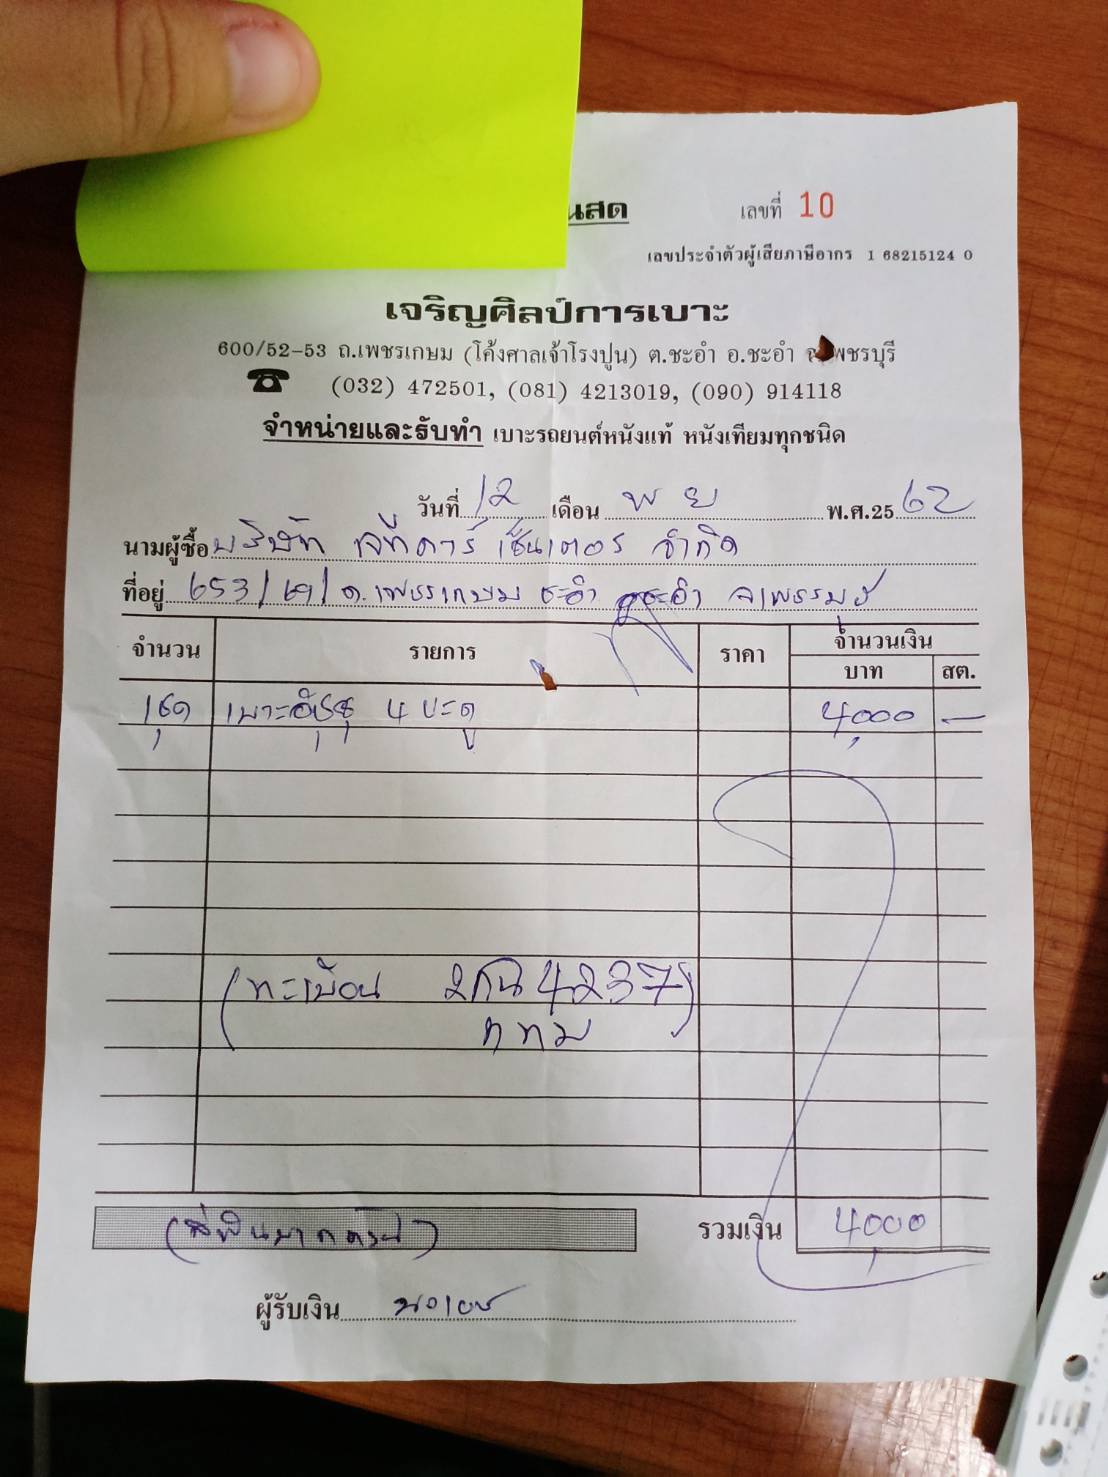 นสด เลขที่ 10
เลขประจำตัวผู้เสียภาษีอากร 1 68215124 0
เจริญศิลป์การเบาะ
600/52-53 ถ.เพชรเกษม (โค้งศาลเจ้าโรงปูน) ต.ชะอำ อ.ชะอำ จ.เพชรบุรี
(032) 472501, (081) 4213019, (090) 914118
จำหน่ายและรับทำ เบาะรถยนต์หนังแท้ หนังเทียมทุกชนิด
วันที่ 12 เดือน พ ย พ.ศ.25 62
นามผู้ซื้อ บริษัท เจที คาร์ เซ็นเตอร์ จำกัด
ที่อยู่ 653/ ถ.เพชรเกษม ชะอำ ชะอำ จ.เพชรบุรี
จำนวน รายการ ราคา จำนวนเงิน
บาท สต.
1 ชุด เบาะอีซูซุ 4 ประตู 4,000 -
(ทะเบียน 2กน 4237)
กทม
(สี่พันบาทถ้วน) รวมเงิน 4,000
ผู้รับเงิน